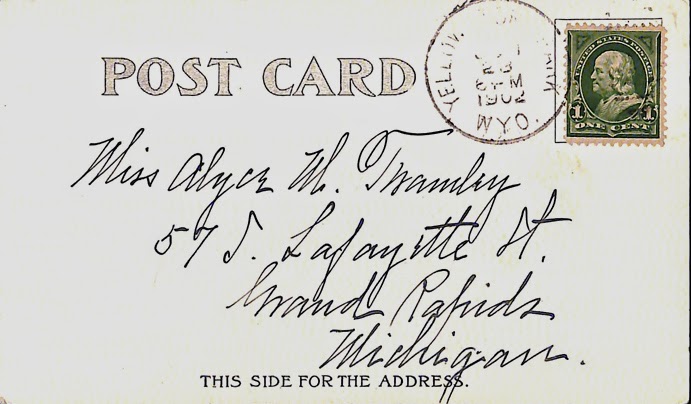 POST CARD
YELLOW PARK
23
M
1902
WYO.
UNITED STATES POSTAGE
1 1
ONE CENT
Miss Alyce M.
57 S. Lafayette St.
Grand Rapids
Michigan.
THIS SIDE FOR THE ADDRESS.